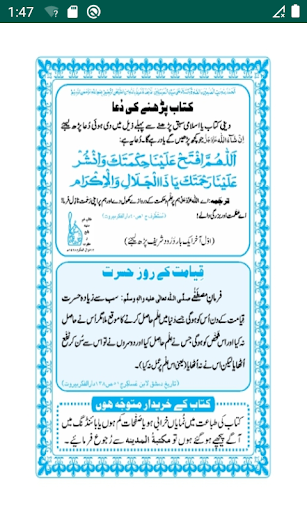 1:47
کتاب پڑھنے کی دُعا
دینی کتاب یا اسلامی سبق پڑھنے سے پہلے ذیل میں دی ہوئی دُعا پڑھ لیجئے
اِنْ شَآءَ اللہ عَزَّوَجَلَّ جو کچھ پڑھیں گے یاد رہے گا۔ دُعا یہ ہے:
اَللّٰهُمَّ افْتَحْ عَلَيْنَا حِكْمَتَكَ وَانْشُرْ
عَلَيْنَا رَحْمَتَكَ يَا ذَا الْجَلَالِ وَالْاِكْرَام
ترجمہ: اے اللہ عَزَّوَجَلَّ ہم پر علم و حکمت کے دروازے کھول دے اور ہم پر اپنی رحمت نازل فرما!
اے عظمت اور بزرگی والے!
(اوّل آخر ایک بار دُرود شریف پڑھ لیجئے)
قِیامت کے روز حسرت
فرمانِ مصطَفٰے صلَّی اللہ تعالٰی علیہ واٰلہ وسلَّم: سب سے زیادہ حسرت
قیامت کے دن اُس کو ہوگی جسے دنیا میں علم حاصل کرنے کا موقع ملا مگر اُس نے حاصل
نہ کیا اور اس شخص کو ہوگی جس نے علم حاصل کیا اور دوسروں نے تو اس سے سن کر نفع
اُٹھایا لیکن اس نے نہ اُٹھایا (یعنی اس علم پر عمل نہ کیا)۔
کتاب کے خریدار متوجہ ہوں
کتاب کی طباعت میں نُمایاں خرابی ہو یا صفحات کم ہوں یا بائنڈنگ میں
آگے پیچھے ہو گئے ہوں تو مکتبۃ المدینہ سے رُجوع فرمائیے۔